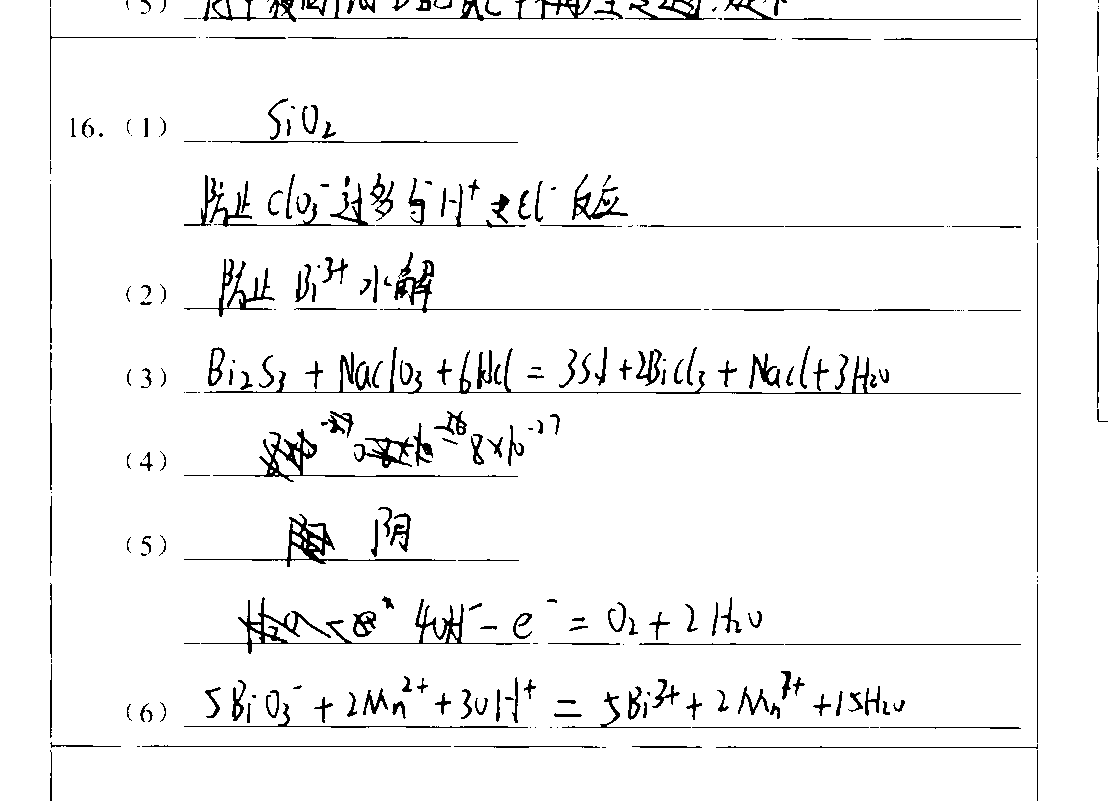 (5)
16. (1) SiO₂
防止 ClO₃⁻ 过多与 H⁺ Cl⁻ 反应
(2) 防止 Bi³⁺ 水解
(3) Bi₂S₃ + NaClO₃ + 6HCl = 3S↓ + 2BiCl₃ + NaCl + 3H₂O
(4) 8×10⁻²⁷
(5) 阴
4OH⁻ - e⁻ = O₂ + 2H₂O
(6) 5BiO₃⁻ + 2Mn²⁺ + 30H⁺ = 5Bi³⁺ + 2Mn⁷⁺ + 15H₂O